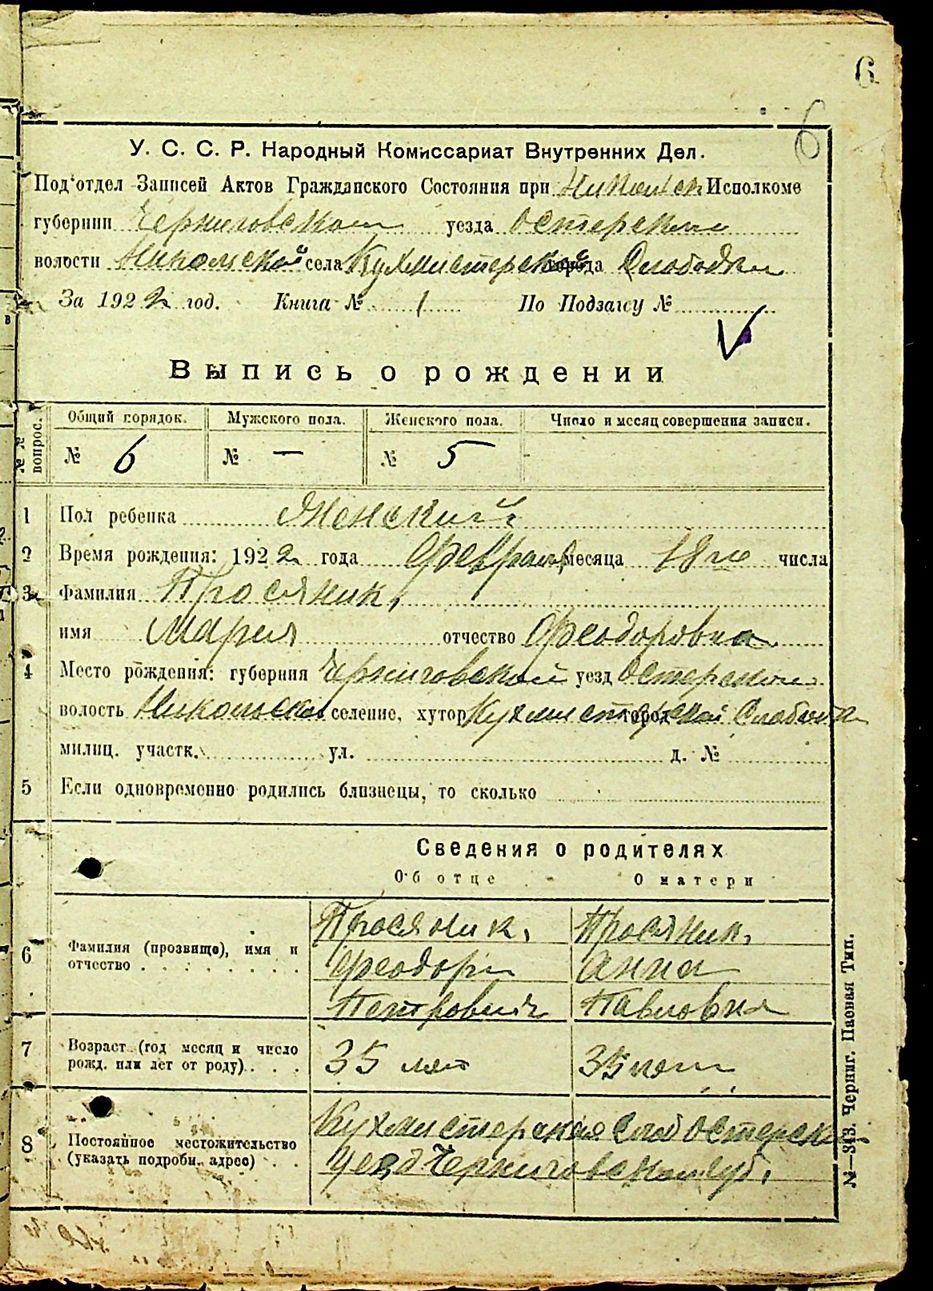 6
6
У. С. С. Р. Народный Комиссариат Внутренних Дел.
Подотдел Записей Актов Гражданского Состояния при Никольск Исполкоме
губернии Черниговской уезда Остерском
волости Никольской села Кухмистерской города Слободки
За 1922 год. Книга № 1 По Подзагсу №
Выпись о рождении
№№ вопрос. Общий порядок. Мужского пола. Женского пола. Число и месяц совершения записи.
№ 6 № — № 5
1 Пол ребенка Женский
2 Время рождения: 1922 года Февраля месяца 18го числа
3 Фамилия Просяник,
имя Мария отчество Феодоровна
4 Место рождения: губерния Черниговской уезд Остерском
волость Никольской селение, хутор Кухмистерской город Слободка
милиц. участк. ул. д. №
5 Если одновременно родились близнецы, то сколько
Сведения о родителях
Об отце О матери
6 Фамилия (прозвище), имя и отчество Просяник, Просяник,
Феодор Анна
Петрович Павловна
7 Возраст (год месяц и число рожд. или лет от роду) 35 лет 35 лет
8 Постоянное местожительство (указать подробн. адрес) Кухмистерская Слоб Остерск
уезд Черниговской губ.
№—343. Черниг. Паовая Тип.